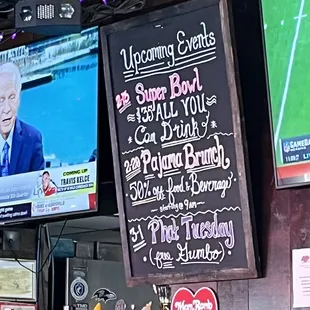 Upcoming Events
2-13 Super Bowl
$35 ALL YOU
Can Drink
2-20 Pajama Brunch
50% off food & Beverage
starting @ 9am
3-1 Phat Tuesday
(free Gumbo)
COMING UP
TRAVIS KELCE